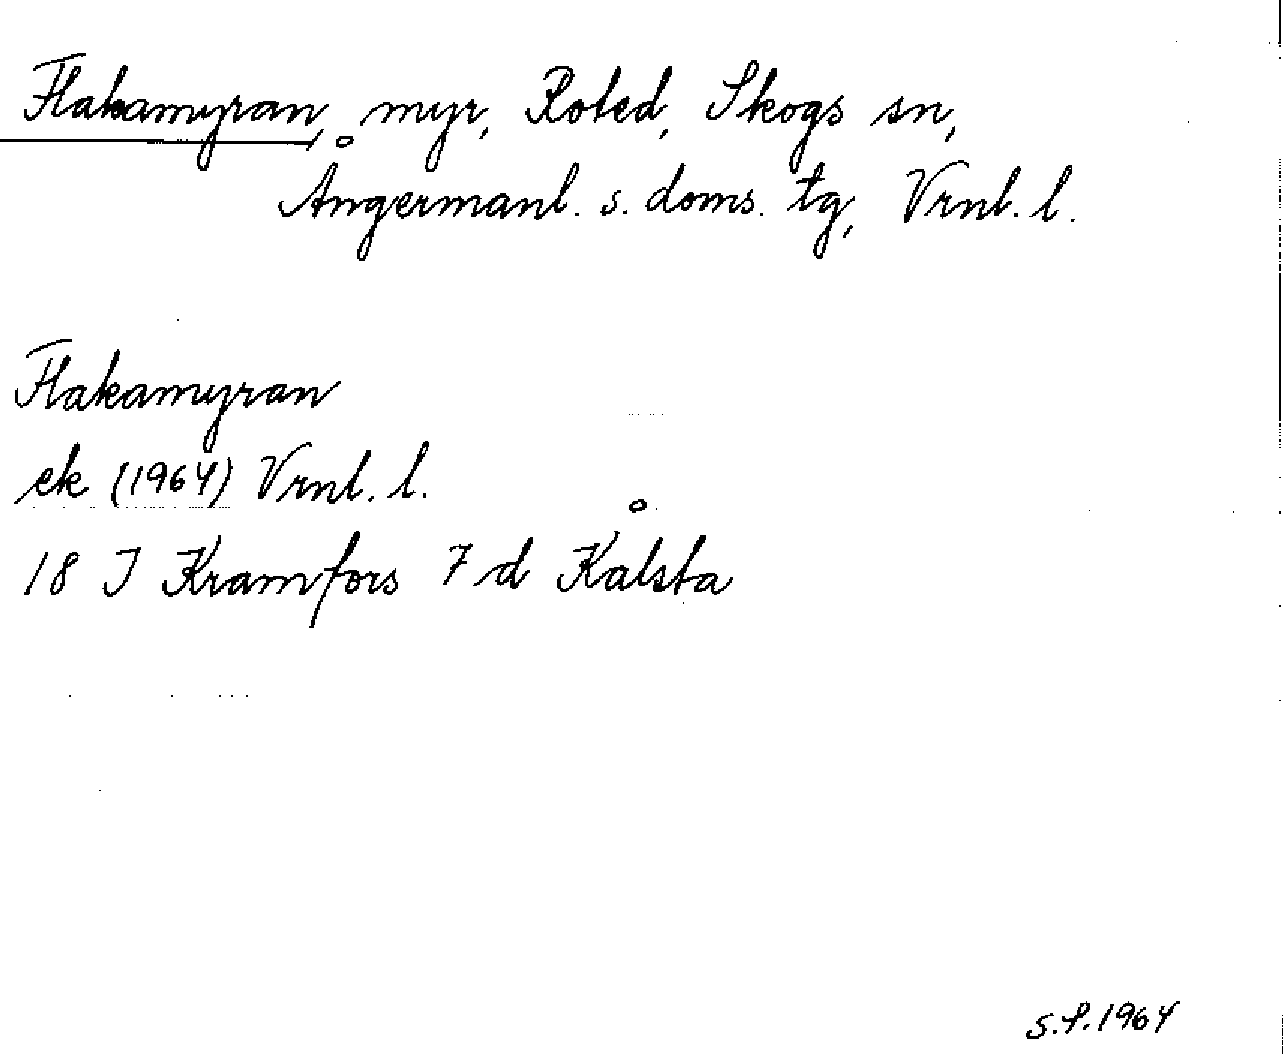 Flakamyran, myr, Roted, Skogs sn,
Ångermanl. s. doms. tg, Vrnl. l.
Flakamyran
ek (1964) Vrnl. l.
18 I Kramfors 7 d Kålsta
S.P.1964